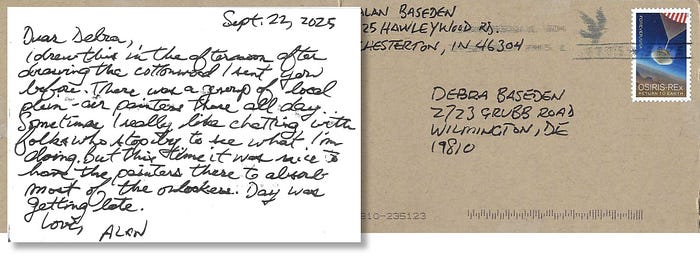 Sept. 22, 2025
Dear Debra,
I drew this in the afternoon after
drawing the cottonwood I sent you
before. There was a group of local
plein-air painters there all day.
Sometimes I really like chatting with
folks who stop by to see what I'm
doing. But this time it was nice to
have the painters there to absorb
most of the onlookers. Day was
getting late.
Love,
ALAN
ALAN BASEDEN
25 HAWLEYWOOD RD.
CHESTERTON, IN 46304
FOREVER/USA
OSIRIS-REx
RETURN TO EARTH
DEBRA BASEDEN
2723 GRUBB ROAD
WILMINGTON, DE
19810
810-235123